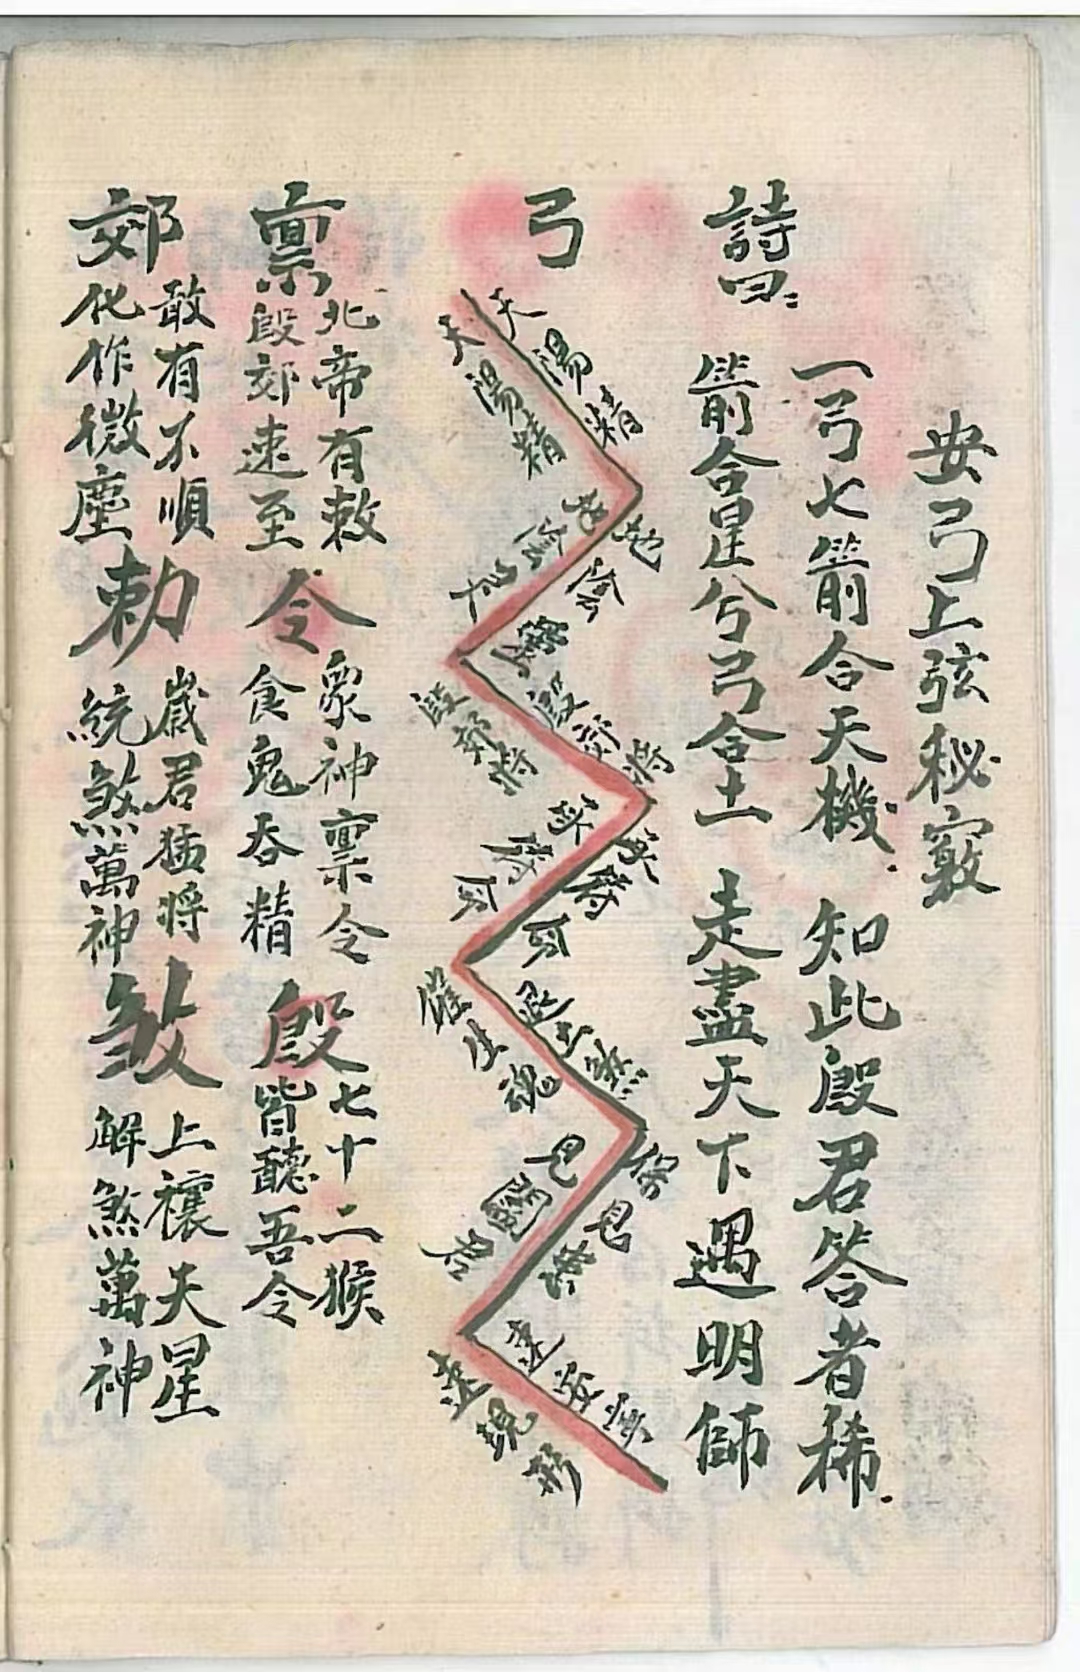 安弓上弦秘竅
詩曰：
一弓七箭合天機．知此殷君答者稀．
箭合星兮弓合土 走盡天下遇明師
弓
天陽精
天陽精
地陰
殷郊將
殷郊將
催生魂
保
遠現形
稟
北帝有敕
殷郊速至
令
衆神稟令
食鬼吞精
殷
七十二猴
皆聽吾令
郊
敢有不順
化作微塵
勅
歲君猛将
統煞萬神
煞
上禳天星
解煞萬神